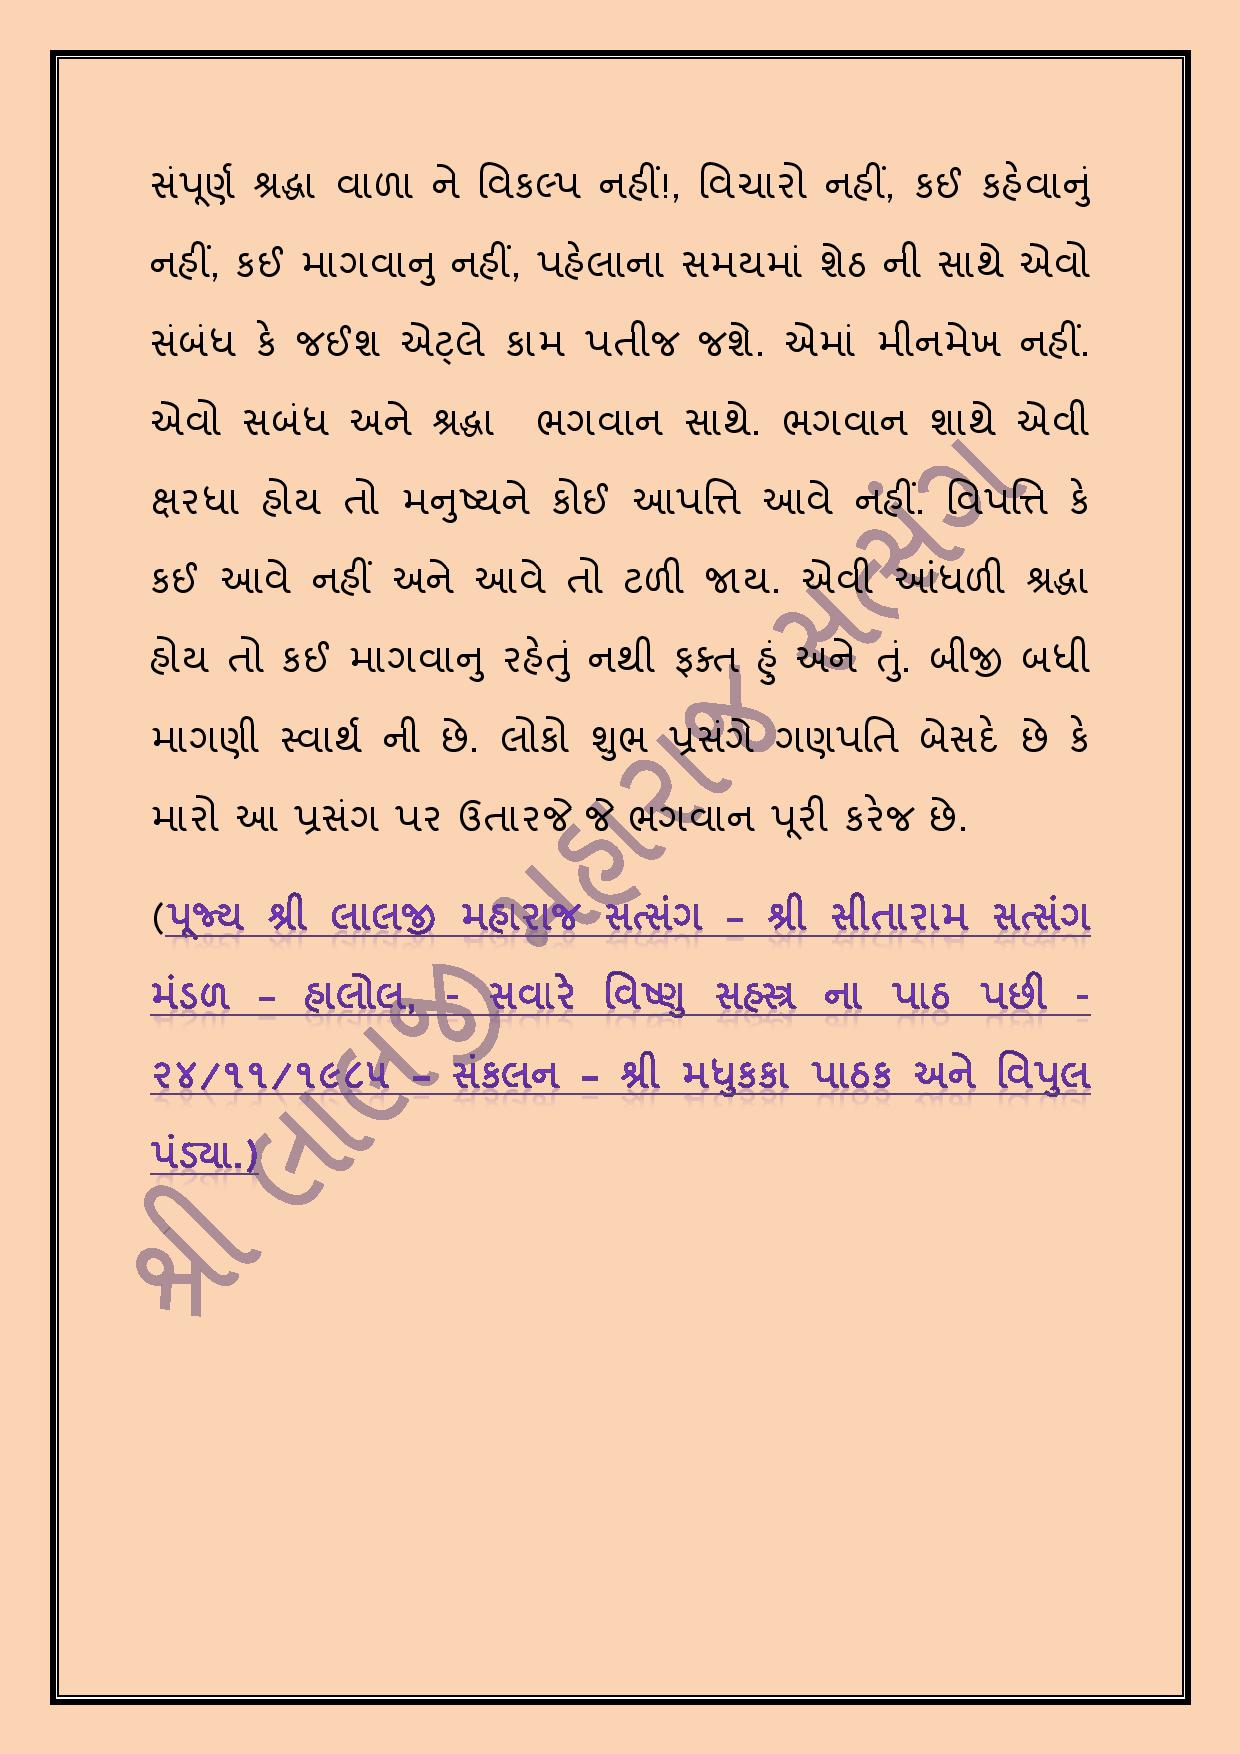 સંપૂર્ણ શ્રદ્ધા વાળા ને વિકલ્પ નહીં!, વિચારો નહીં, કઈ કહેવાનું
નહીં, કઈ માગવાનુ નહીં, પહેલાના સમયમાં શેઠ ની સાથે એવો
સંબંધ કે જઈશ એટ્લે કામ પતીજ જશે. એમાં મીનમેખ નહીં.
એવો સબંધ અને શ્રદ્ધા ભગવાન સાથે. ભગવાન શાથે એવી
ક્ષરધા હોય તો મનુષ્યને કોઈ આપત્તિ આવે નંહીં. વિપત્તિ કે
કઈ આવે નહીં અને આવે તો ટળી જાય. એવી આંધળી શ્રદ્ધા
હોય તો કઈ માગવાનુ રહેતું નથી ફક્ત હું અને તું. બીજી બધી
માગણી સ્વાર્થ ની છે. લોકો શુભ પ્રસંગે ગણપતિ બેસદે છે કે
મારો આ પ્રસંગ પર ઉતારજે જે ભગવાન પૂરી કરેજ છે.
(પૂજ્ય શ્રી લાલજી મહારાજ સત્સંગ – શ્રી સીતારામ સત્સંગ
મંડળ – હાલોલ, - સવારે વિષ્ણુ સહસ્ત્ર ના પાઠ પછી -
૨૪/૧૧/૧૯૮૫ – સંકલન – શ્રી મધુકકા પાઠક અને વિપુલ
પંડ્યા.)
શ્રી લાલજી મહારાજ સત્સંગ